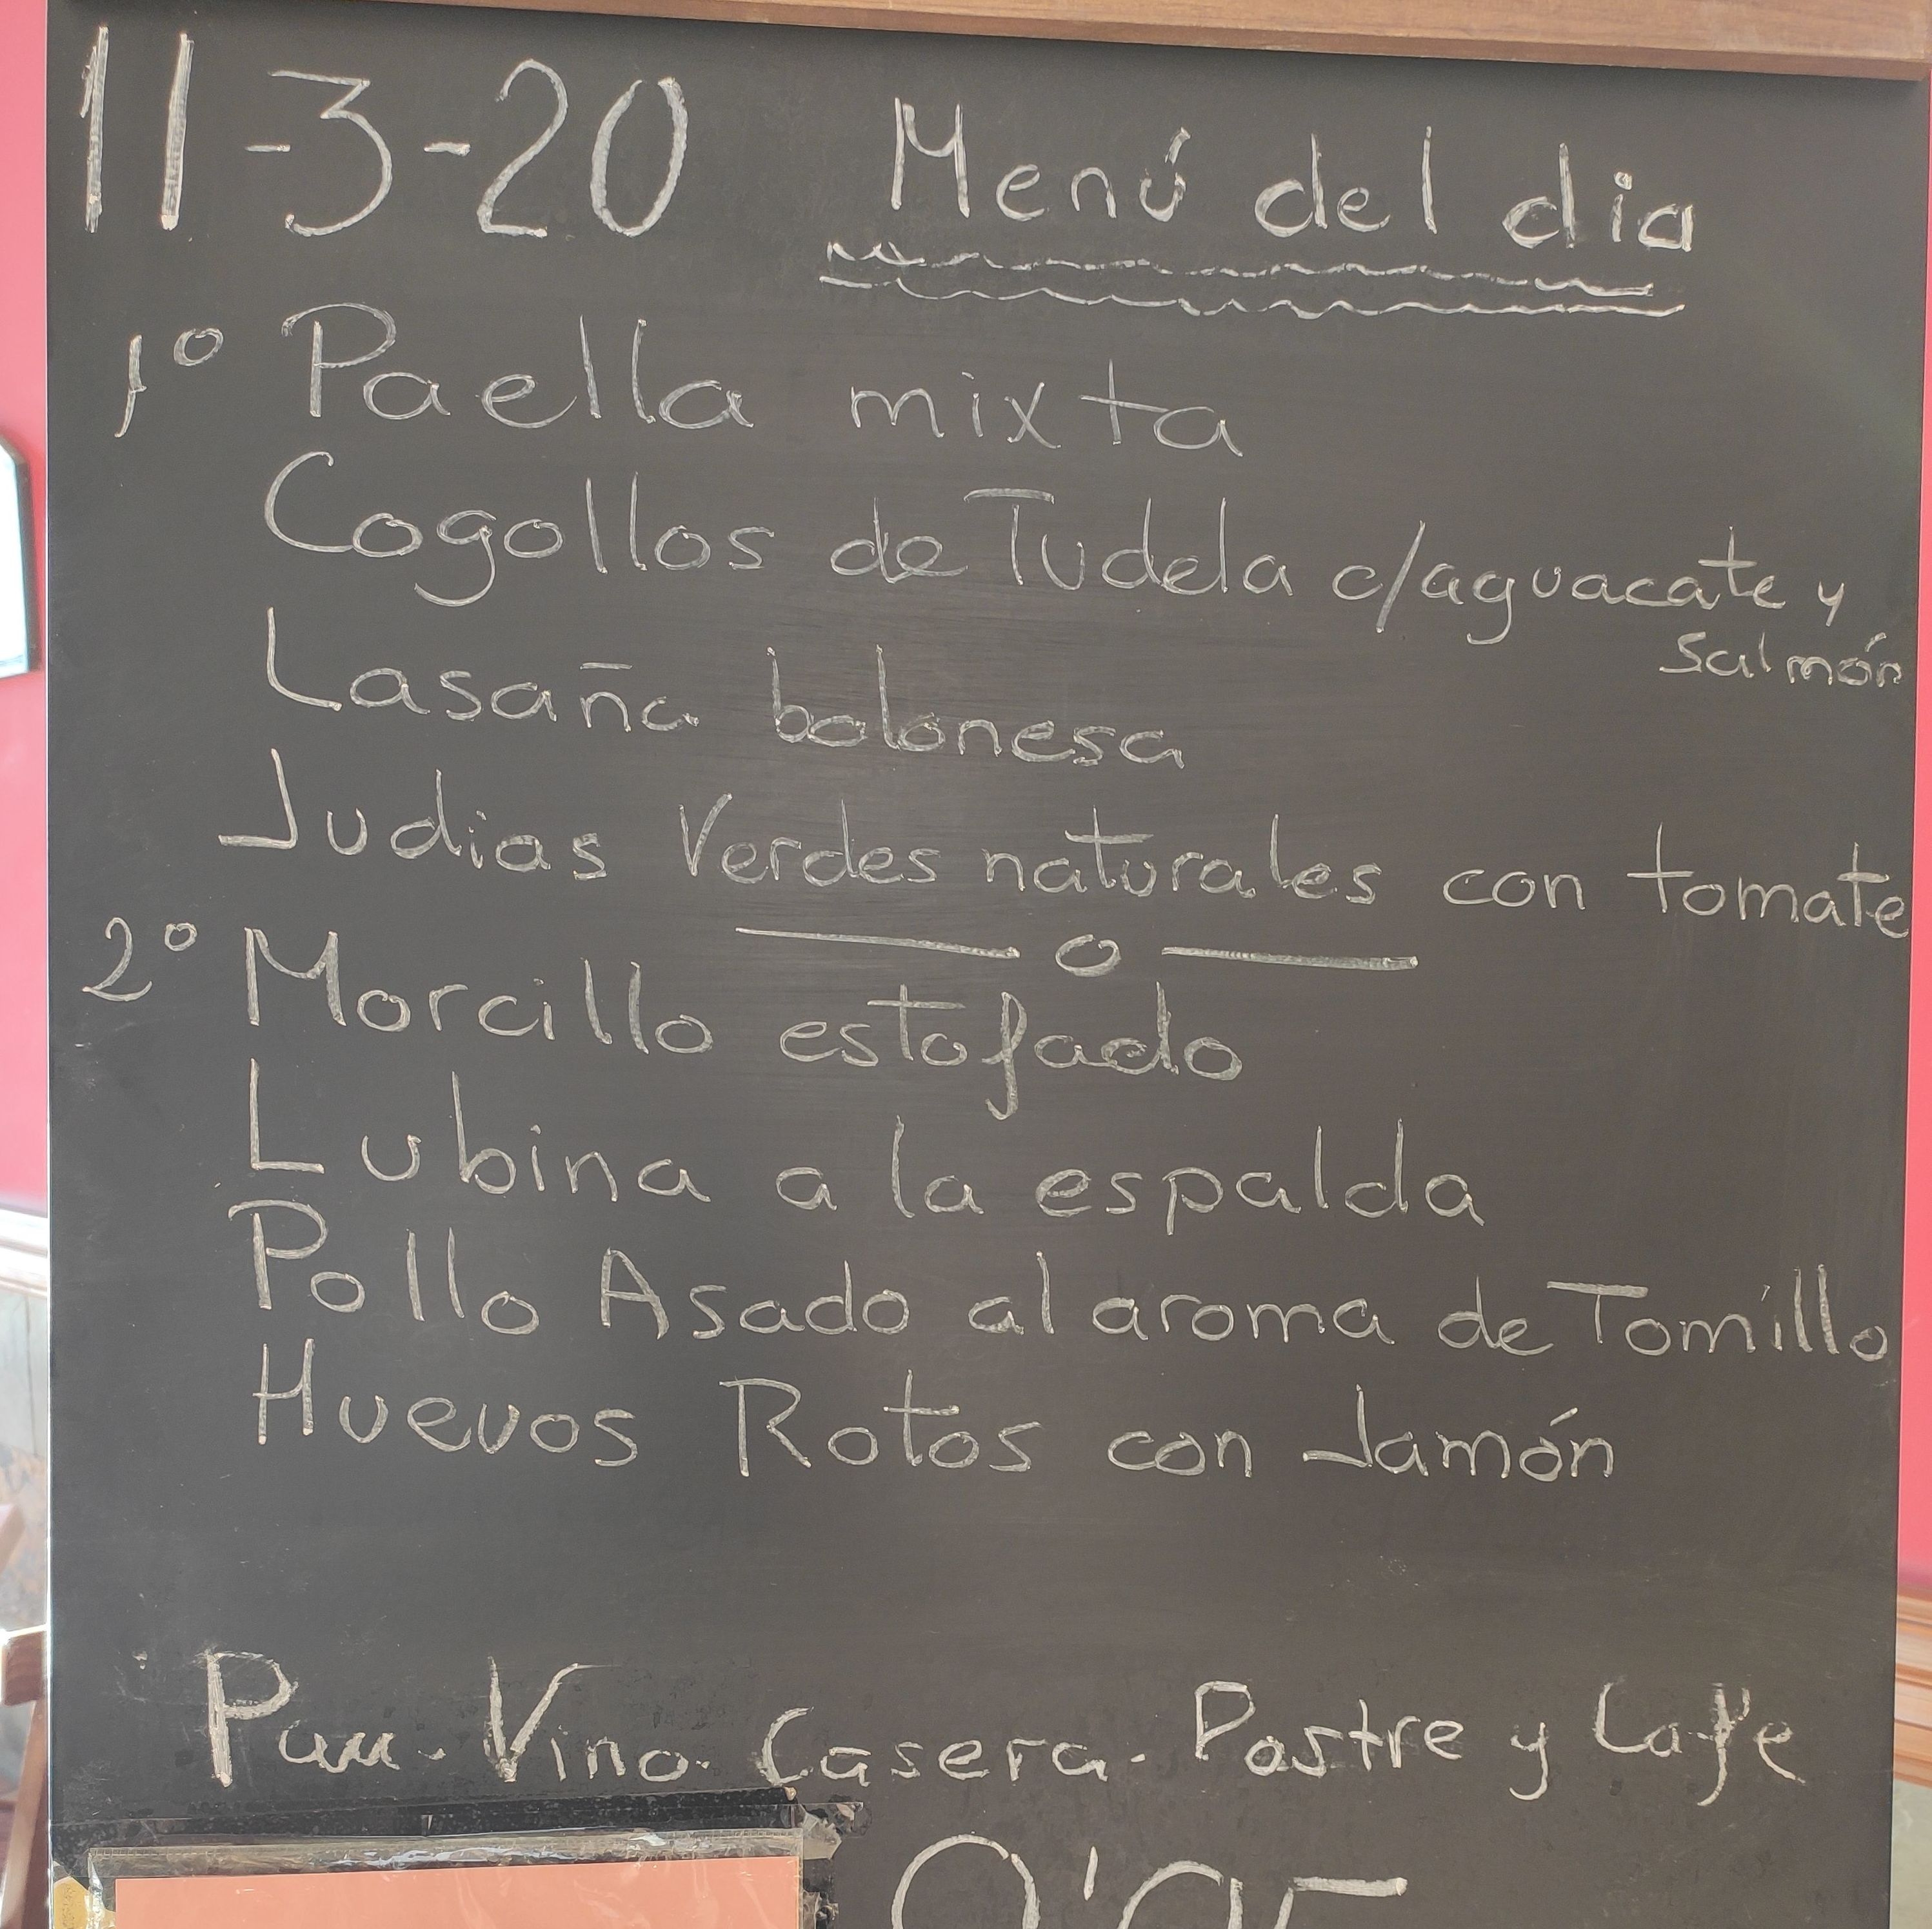 11-3-20 Menú del dia
1º Paella mixta
Cogollos de Tudela c/aguacate y
salmón
Lasaña bolonesa
Judias Verdes naturales con tomate
— o —
2º Morcillo estofado
Lubina a la espalda
Pollo Asado al aroma de Tomillo
Huevos Rotos con Jamón
Pan. Vino. Casera. Postre y Cafe